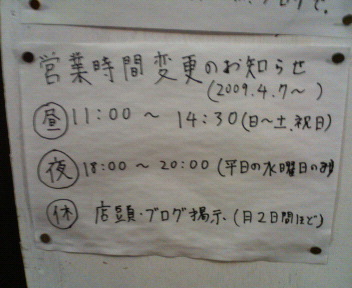 営業時間変更のお知らせ
(2009.4.7〜 )
昼 11:00 〜 14:30(日〜土、祝日)
夜 18:00 〜 20:00 (平日の水曜日のみ)
休 店頭・ブログ掲示、(月2日間ほど)